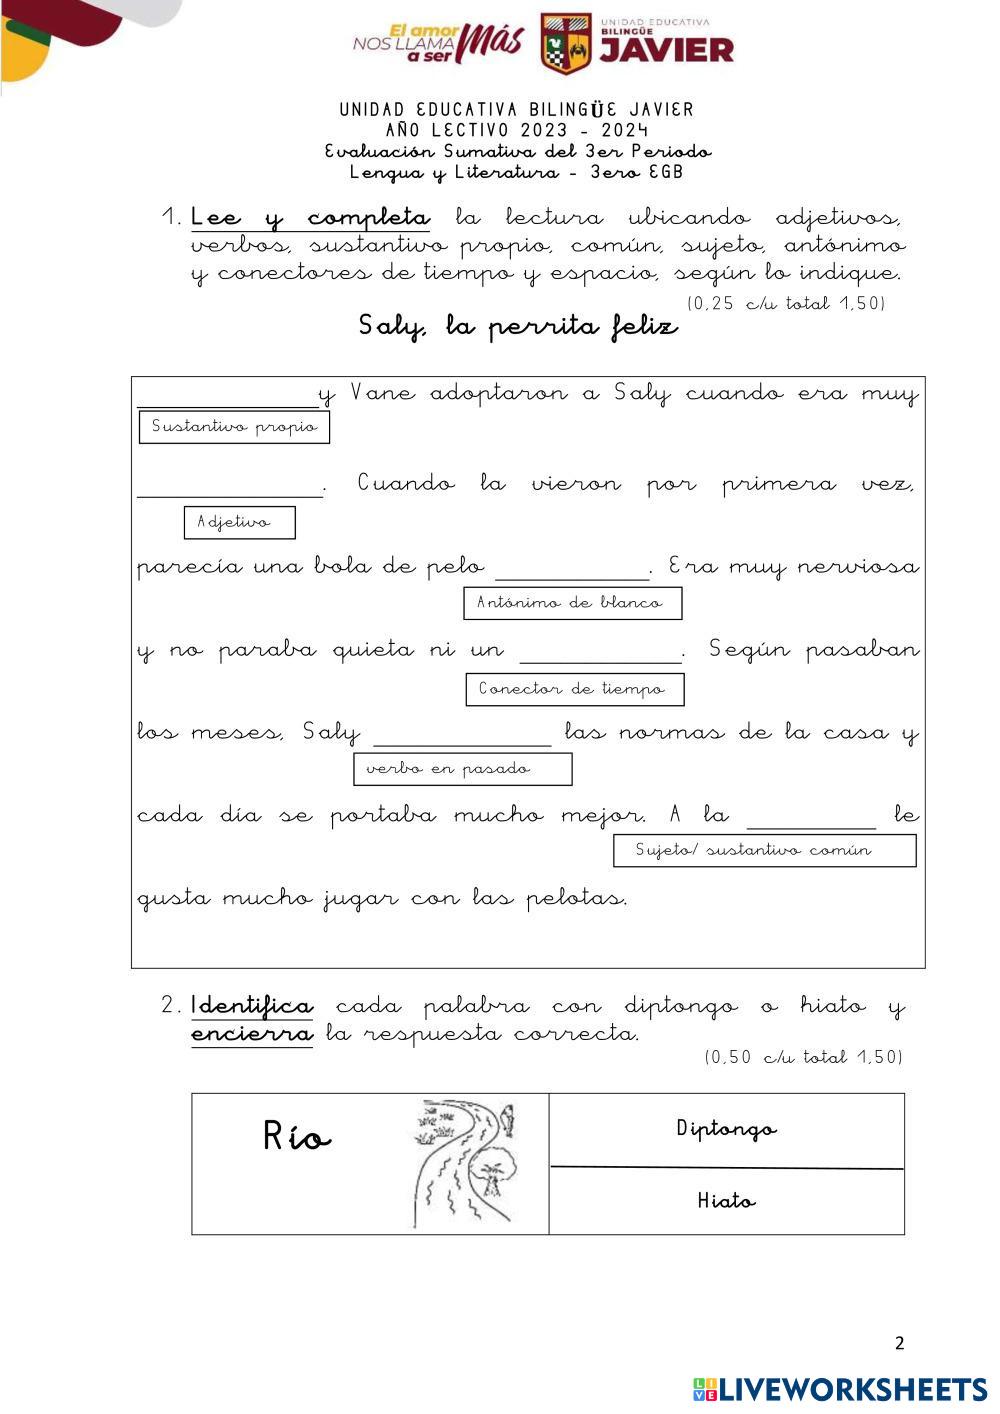 El amor
NOS LLAMA
a ser
Más
UNIDAD EDUCATIVA
BILINGÜE
JAVIER
UNIDAD EDUCATIVA BILINGÜE JAVIER
AÑO LECTIVO 2023 - 2024
Evaluación Sumativa del 3er Periodo
Lengua y Literatura - 3ero EGB
1. Lee y completa la lectura ubicando adjetivos,
verbos, sustantivo propio, común, sujeto, antónimo
y conectores de tiempo y espacio, según lo indique.
(0,25 c/u total 1,50)
Saly, la perrita feliz
______________ y Vane adoptaron a Saly cuando era muy
Sustantivo propio
______________. Cuando la vieron por primera vez,
Adjetivo
parecía una bola de pelo ____________. Era muy nerviosa
Antónimo de blanco
y no paraba quieta ni un ____________. Según pasaban
Conector de tiempo
los meses, Saly ______________ las normas de la casa y
verbo en pasado
cada día se portaba mucho mejor. A la __________ le
Sujeto/ sustantivo común
gusta mucho jugar con las pelotas.
2. Identifica cada palabra con diptongo o hiato y
encierra la respuesta correcta.
(0,50 c/u total 1,50)
Río
Diptongo
Hiato
2
LIVEWORKSHEETS